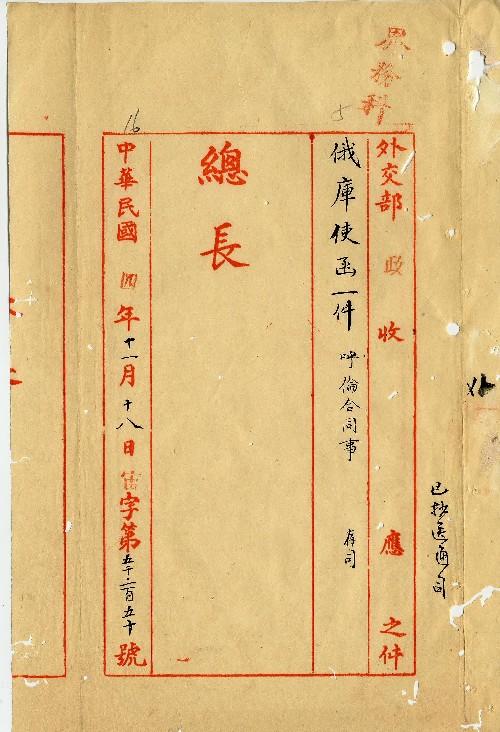 界務科
外交部政收應之件
俄庫使函一件 呼倫合同事 存司
總長
中華民國四年十一月十八日 字第五千二百五十號
已抄送通司
16
5